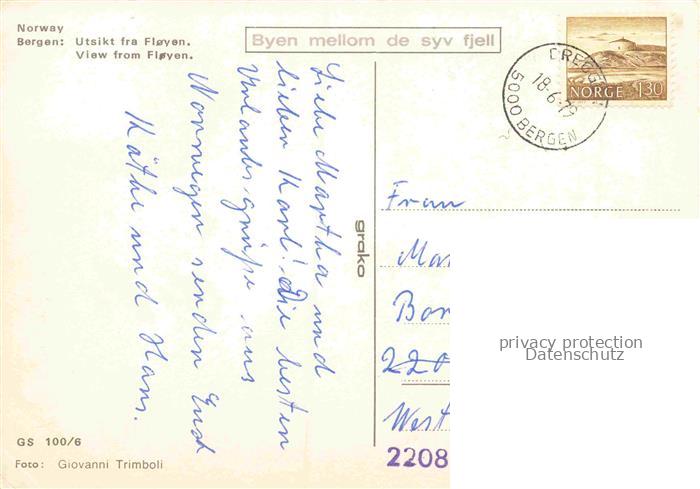 Norway
Bergen: Utsikt fra Fløyen.
View from Fløyen.
Byen mellom de syv fjell
NORGE 130
18.-6.79
5000 BERGEN
Liebe Martha und
lieber Karl! Die besten
Urlaubsgrüße aus
Norwegen senden Euch
Käthe und Hans.
grako
Frau
Mar
Bor
220
West
2208
privacy protection
Datenschutz
GS 100/6
Foto: Giovanni Trimboli